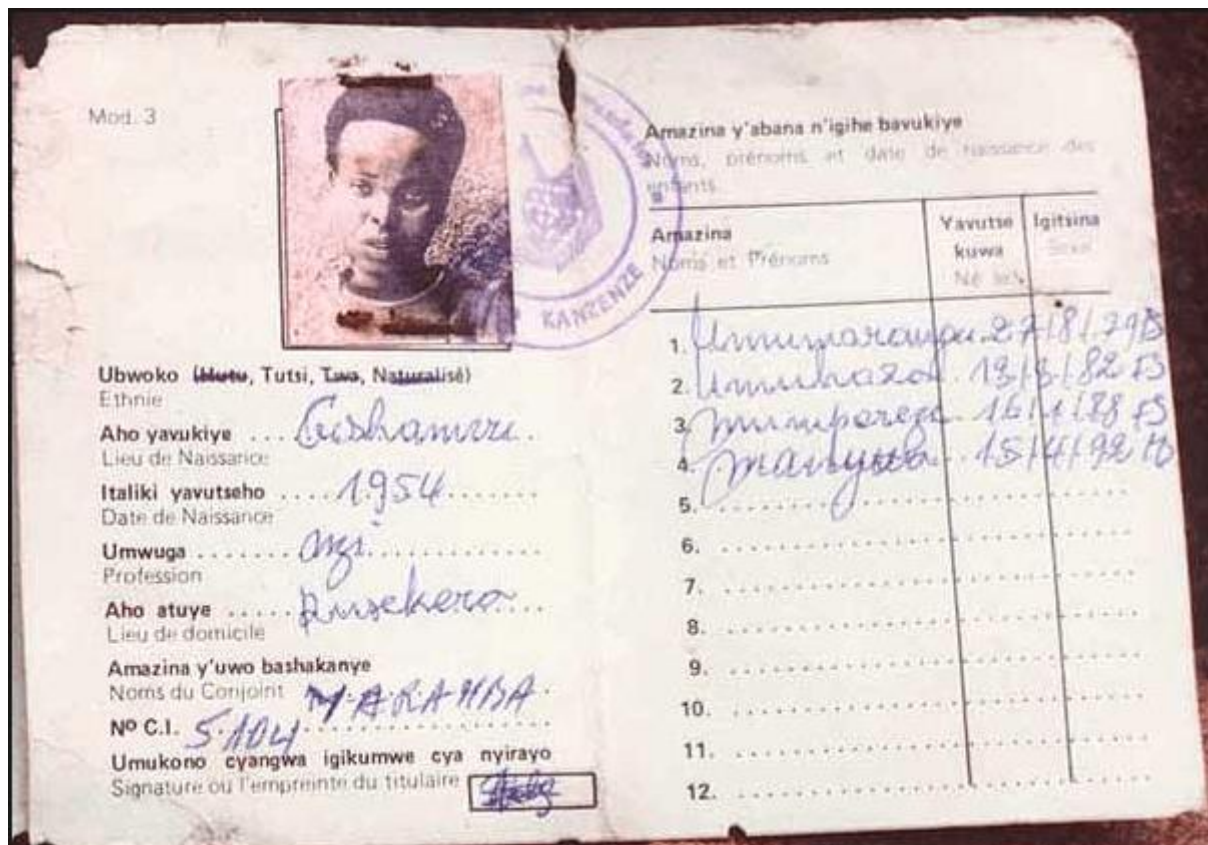 Mod. 3
KANZENZE
Ubwoko (Hutu, Tutsi, Twa, Naturalisé)
Ethnie
Aho yavukiye .... Gishamvu.
Lieu de Naissance
Italiki yavutseho .... 1954
Date de Naissance
Umwuga
Profession
Aho atuye ..... Rusekera
Lieu de domicile
Amazina y'uwo bashakanye
Noms du Conjoint
Nº C.I. 5.104
Umukono cyangwa igikumwe cya nyirayo
Signature ou l'empreinte du titulaire
Amazina y'abana n'igihe bavukiye
Noms, prénoms et date de naissance des
enfants
Amazina
Noms et Prénoms
Yavutse
kuwa
Né le
Igitsina
Sexe
1. 27/8/79
2. Umuhoza 82
3. 16/1/88
4. 15/4/92
5.
6.
7.
8.
9.
10.
11.
12.